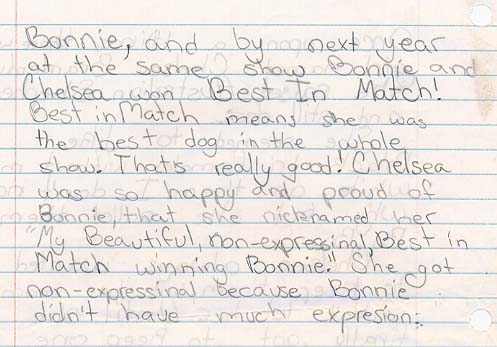 Bonnie, and by next year
at the same show Bonnie and
Chelsea won Best In Match!
Best in Match means she was
the best dog in the whole
show. That's really good! Chelsea
was so happy and proud of
Bonnie, that she nicknamed her
"My Beautiful, non-expressinal, Best in
Match winning Bonnie!" She got
non-expressinal because Bonnie
didn't have much expresion.